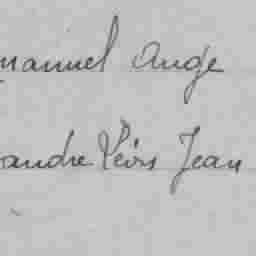 manuel Ange
andre Léon Jean